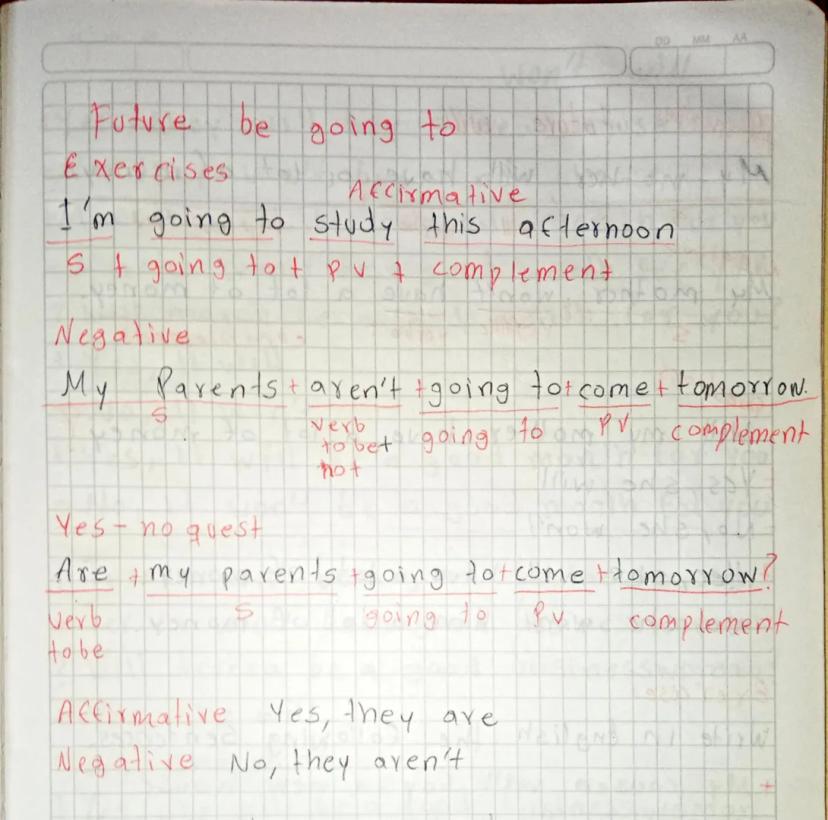 DD MM AA
Future be going to
Exercises
Affirmative
I'm going to study this afternoon
S + going to + PV + complement
Negative
My Parents + aren't + going to + come + tomorrow.
S verb to be + not going to PV complement
Yes - no quest
Are + my parents + going to + come + tomorrow?
verb to be S going to PV complement
Affirmative Yes, they are
Negative No, they aren't